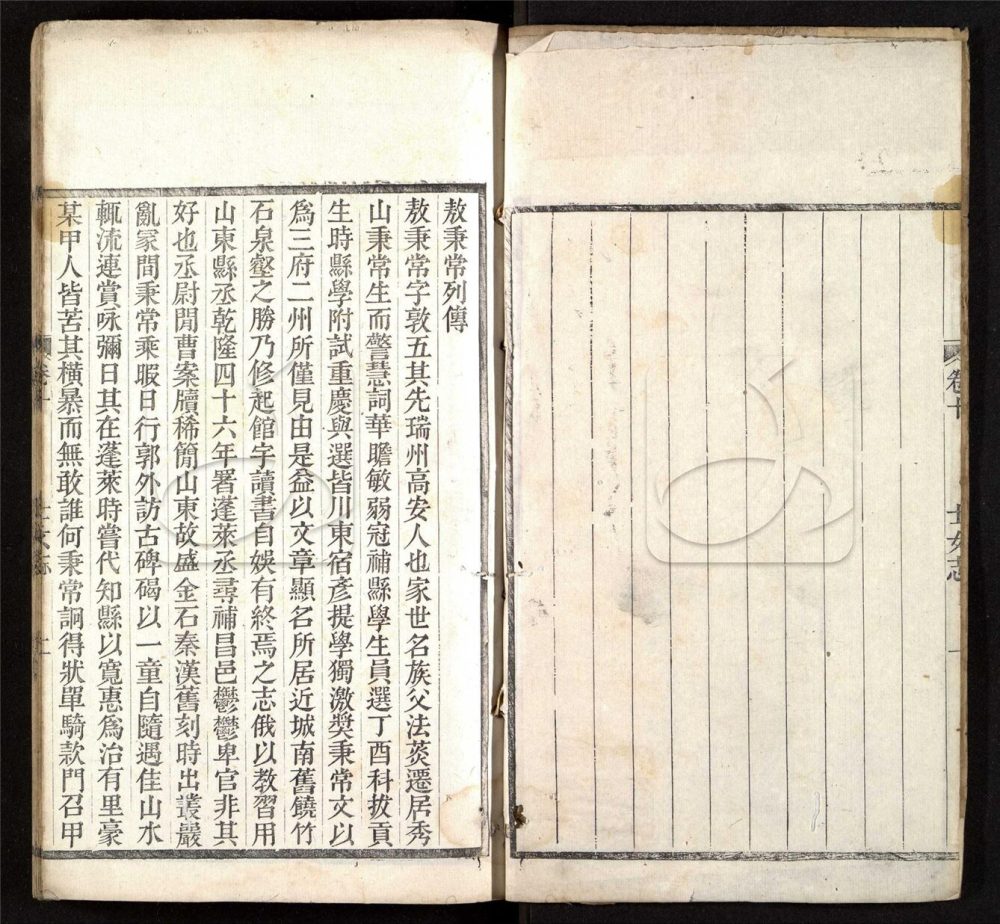 卷十
士女志
敖秉常列傳
敖秉常字敦五其先瑞州高安人也家世名族父法葵遷居秀
山秉常生而警慧詞華贍敏弱冠補縣學生員選丁酉科拔貢
生時縣學附試重慶與選皆川東宿彥提學獨激奬秉常文以
爲三府二州所僅見由是益以文章顯名所居近城南舊饒竹
石泉壑之勝乃修起館宇讀書自娛有終焉之志俄以教習用
山東縣丞乾隆四十六年署蓬萊丞尋補昌邑鬱鬱卑官非其
好也丞尉閒曹案牘稀簡山東故盛金石秦漢舊刻時出叢巖
亂冢間秉常乘暇日行郭外訪古碑碣以一童自隨遇佳山水
輒流連賞咏彌日其在蓬萊時嘗代知縣以寬惠爲治有里豪
某甲人皆苦其橫暴而無敢誰何秉常詗得狀單騎款門召甲
卷十
士女志